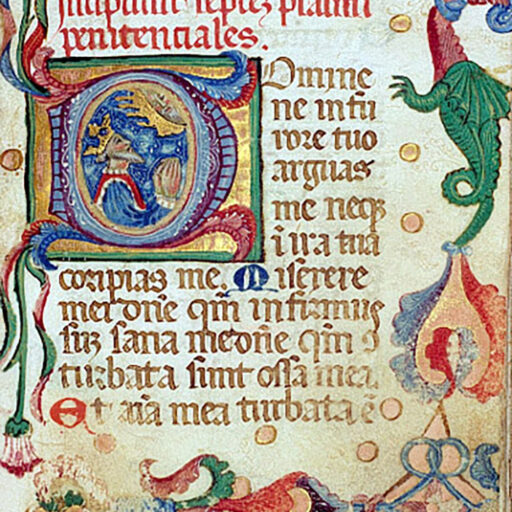 Incipiunt septez psalmi
penitenciales.
Domine
ne in fu
rore tuo
arguas
me neqz
i ira tua
coripias me. Miserere
mei dne qm infirmus
suz sana me dne qm
turbata sunt ossa mea.
Et aia mea turbata e